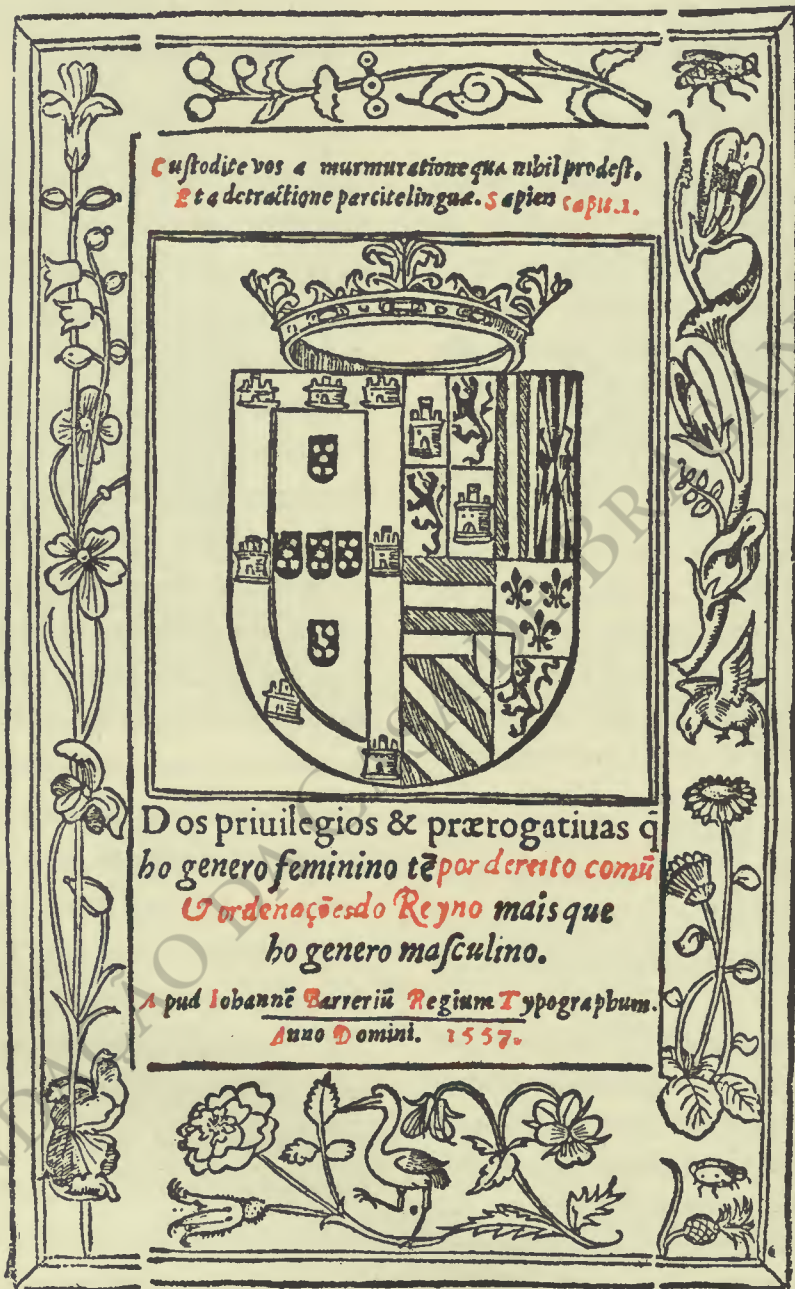 Cuſtodite vos a murmuratione qua nihil prodeſt.
Et a detractione parcite linguæ. Sapien capit.1.
Dos priuilegios & prærogatiuas q̃
ho genero feminino tẽ por dereito comũ
& ordenações do Reyno mais que
ho genero maſculino.
Apud Iohannẽ Barreriũ Regium Typographum.
Anno Domini. 1557.
FUNDAÇÃO DA CASA DE BRAGANÇA